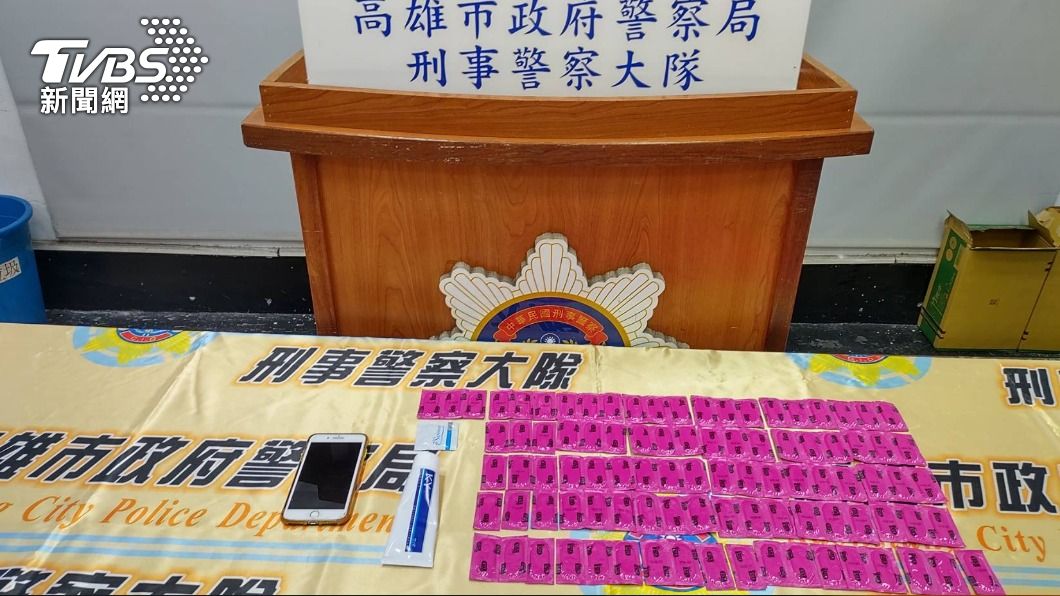 TVBS
新聞網
高雄市政府警察局
刑事警察大隊
圾
中華民國刑事警察
刑事警察大隊
刑
雄市政府警察局
市政
g City Police Departmen
City
KY